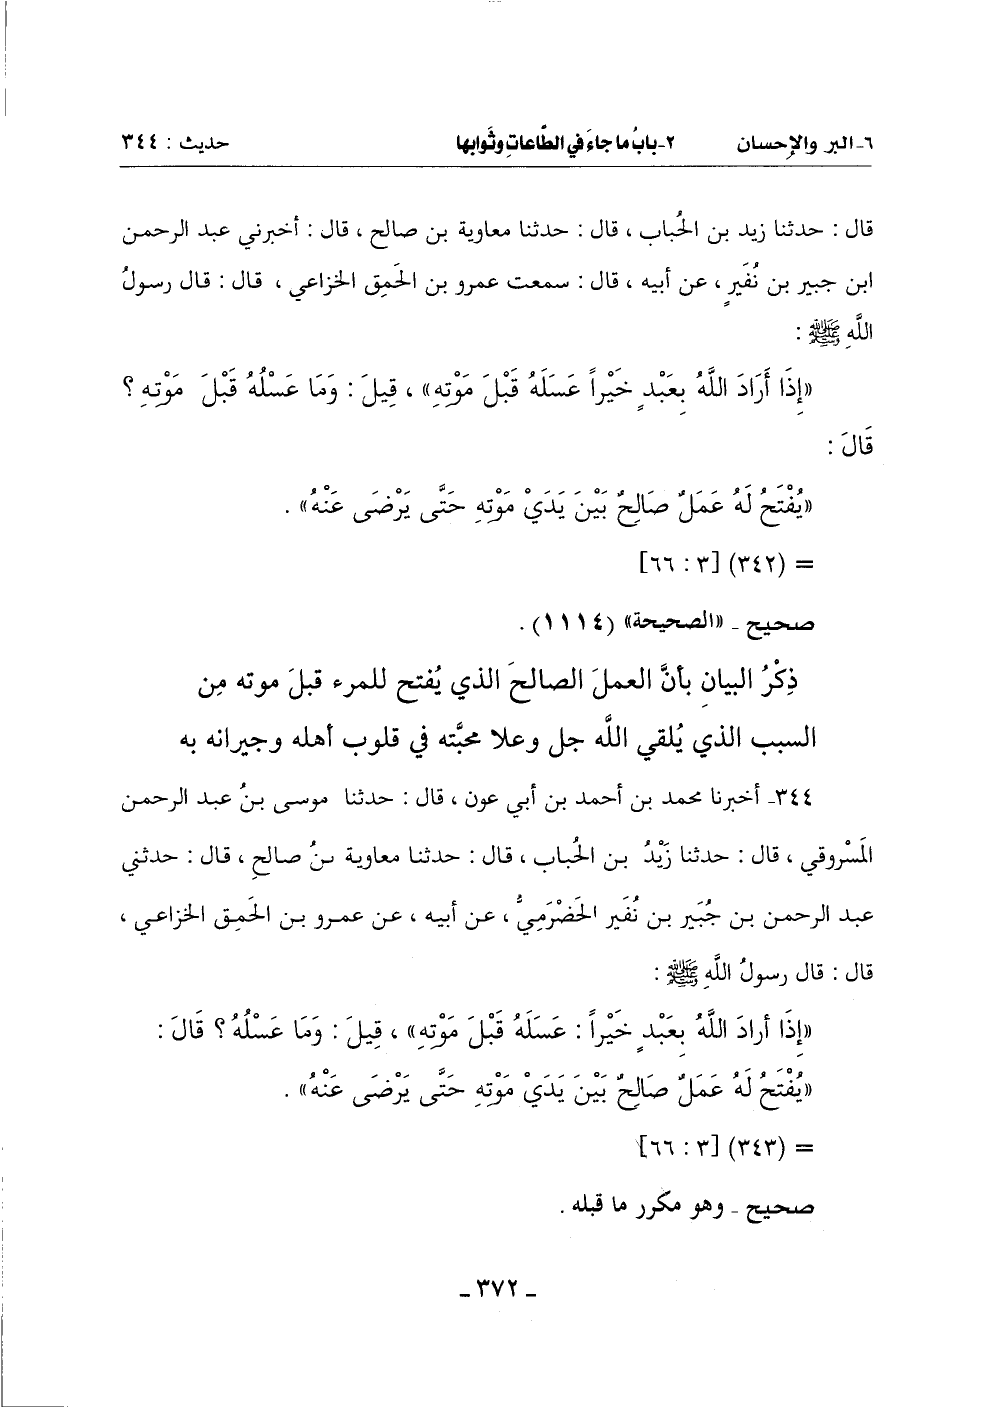 ٦- البر والإحسان ٢- بابُ ما جاءَ في الطّاعاتِ وثَوابها حديث : ٣٤٤
قال : حدثنا زيد بن الحُباب ، قال : حدثنا معاوية بن صالح ، قال : أخبرني عبد الرحمن
ابن جبير بن نُفَيرٍ ، عن أبيه ، قال : سمعت عمرو بن الحَمِق الخزاعي ، قال : قال رسولُ
اللَّهِ ﷺ :
«إِذَا أَرَادَ اللَّهُ بِعَبْدٍ خَيْراً عَسَلَهُ قَبْلَ مَوْتِهِ» ، قِيلَ : وَمَا عَسْلُهُ قَبْلَ مَوْتِهِ ؟
قَالَ :
«يُفْتَحُ لَهُ عَمَلٌ صَالِحٌ بَيْنَ يَدَيْ مَوْتِهِ حَتَّى يَرْضَى عَنْهُ» .
= (٣٤٢) [٣ : ٦٦]
صحيح ـ «الصحيحة» (١١١٤) .
ذِكْرُ البيانِ بأنَّ العملَ الصالحَ الذي يُفتح للمرء قبلَ موته مِن
السبب الذي يُلقي اللَّه جل وعلا محبَّته في قلوب أهله وجيرانه به
٣٤٤ـ أخبرنا محمد بن أحمد بن أبي عون ، قال : حدثنا موسى بنُ عبد الرحمن
المَسْروقي ، قال : حدثنا زَيْدُ بن الحُباب ، قال : حدثنا معاوية بنُ صالحٍ ، قال : حدثني
عبد الرحمن بن جُبَير بن نُفَير الحَضْرَمِيُّ ، عن أبيه ، عن عمرو بن الحَمِق الخزاعي ،
قال : قال رسولُ اللَّهِ ﷺ :
«إِذَا أرادَ اللَّهُ بِعَبْدٍ خَيْراً : عَسَلَهُ قَبْلَ مَوْتِهِ» ، قِيلَ : وَمَا عَسْلُهُ ؟ قَالَ :
«يُفْتَحُ لَهُ عَمَلٌ صَالِحٌ بَيْنَ يَدَيْ مَوْتِهِ حَتَّى يَرْضَى عَنْهُ» .
= (٣٤٣) [٣ : ٦٦]
صحيح ـ وهو مكرر ما قبله .
ـ ٣٧٢ ـ